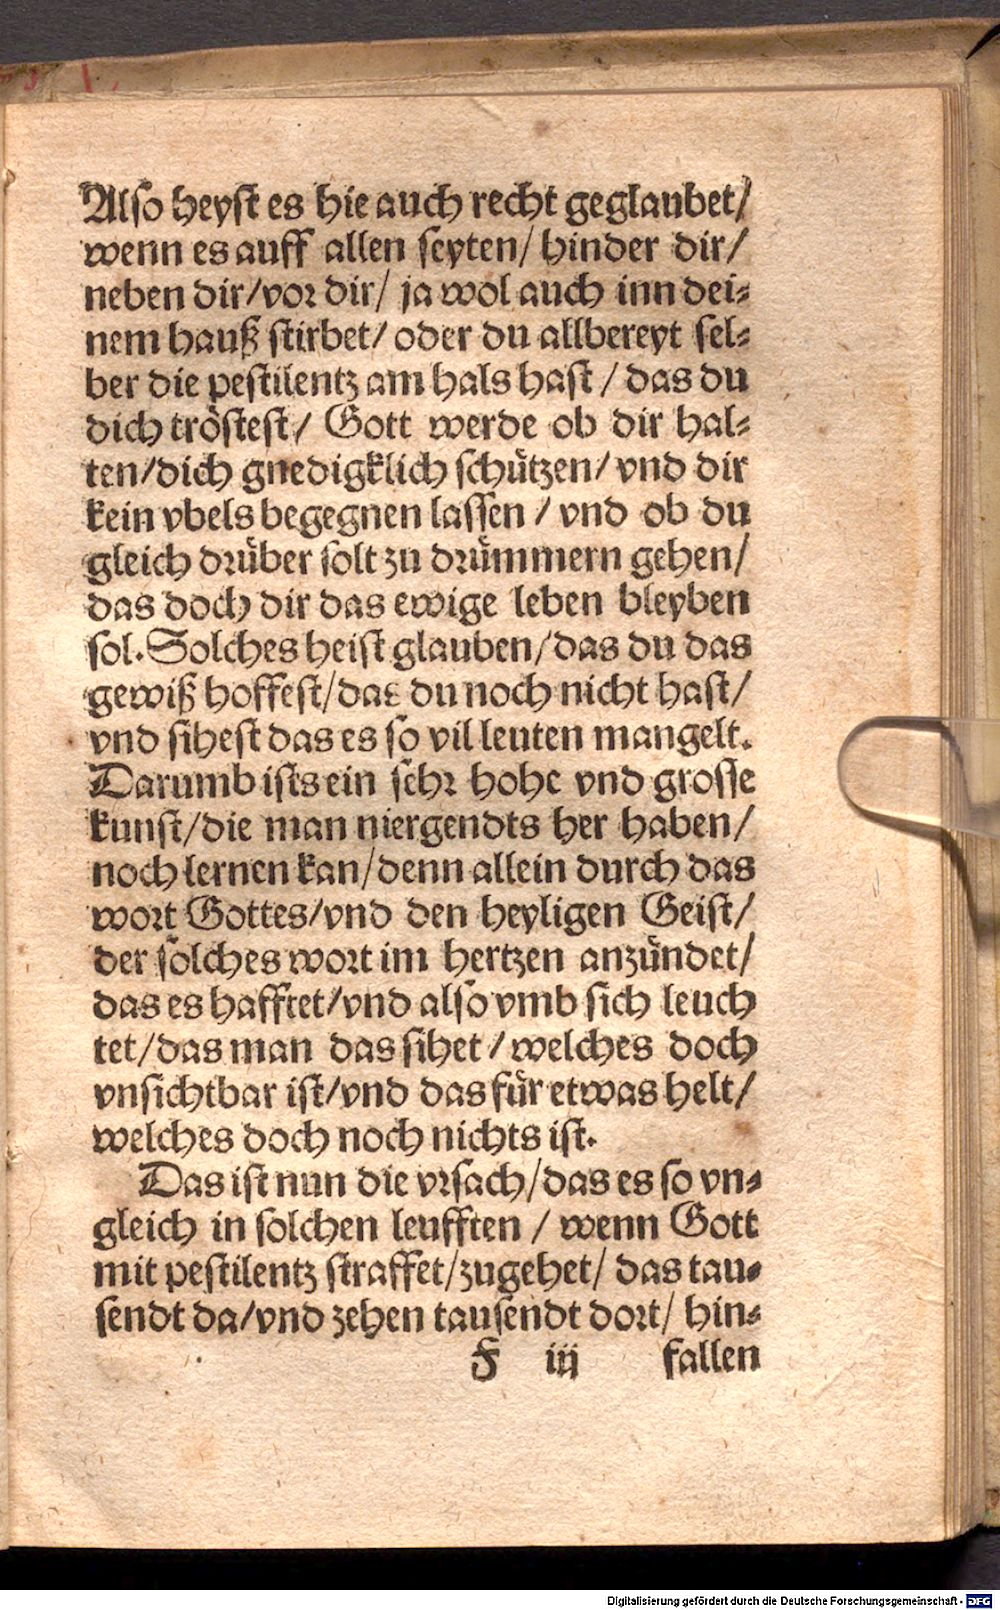 Also heyst es hie auch recht geglaubet/
wenn es auff allen seyten/ hinder dir/
neben dir/vor dir/ ja wol auch inn dei-
nem hauß stirbet/ oder du allbereyt sel-
ber die pestilentz am hals hast / das du
dich tröstest/ Gott werde ob dir hal-
ten/dich gnedigklich schützen/ vnd dir
kein vbels begegnen lassen / vnd ob du
gleich drüber solt zu drümmern gehen/
das doch dir das ewige leben bleyben
sol. Solches heist glauben/das du das
gewiß hoffest/das du noch nicht hast/
vnd sihest das es so vil leuten mangelt.
Darumb ists ein sehr hohe vnd grosse
kunst/die man niergendts her haben/
noch lernen kan/denn allein durch das
wort Gottes/vnd den heyligen Geist/
der solches wort im hertzen anzündet/
das es hafftet/vnd also vmb sich leuch
tet/das man das sihet / welches doch
vnsichtbar ist/vnd das für etwas helt/
welches doch noch nichts ist.
Das ist nun die vrsach/das es so vn-
gleich in solchen leufften / wenn Gott
mit pestilentz straffet/zugehet/ das tau-
sendt da/vnd zehen tausendt dort/ hin-
F iij fallen
Digitalisierung gefördert durch die Deutsche Forschungsgemeinschaft - DFG